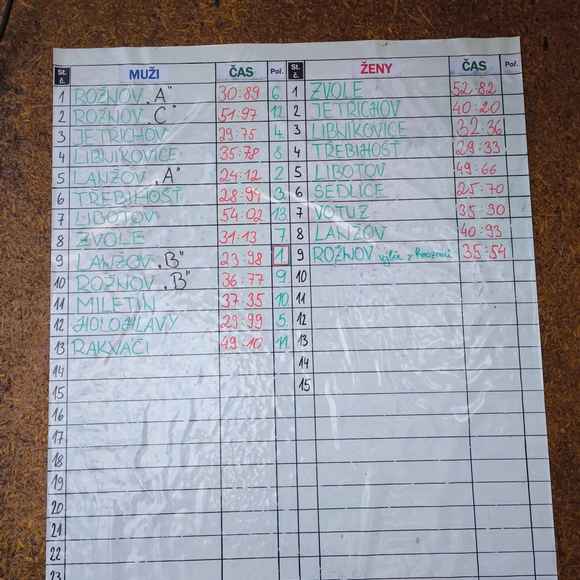 St. č. MUŽI ČAS Poř. St. č. ŽENY ČAS Poř.
1 ROŽNOV „A" 30:89 6 1 ZVOLE 52:82
2 ROŽNOV „C" 51:97 12 2 JETŘICHOV 40:20
3 JETŘICHOV 29:75 4 3 LIBNÍKOVICE 32:36
4 LIBNÍKOVICE 35:78 8 4 TŘEBIHOŠŤ 29:33
5 LANŽOV „A" 24:12 2 5 LIBOTOV 49:66
6 TŘEBIHOŠŤ 28:94 3 6 SEDLICE 25:70
7 LIBOTOV 54:02 13 7 VOTUZ 35:90
8 ZVOLE 31:13 7 8 LANŽOV 40:93
9 LANŽOV „B" 23:98 1. 9 ROŽNOV výběr z 35:54
10 ROŽNOV „B" 36:77 9 10
11 MILETÍN 37:35 10 11
12 HOLOHLAVY 29:99 5 12
13 RAKVÁČI 49:10 11 13
14 14
15 15
16
17
18
19
20
21
22
23